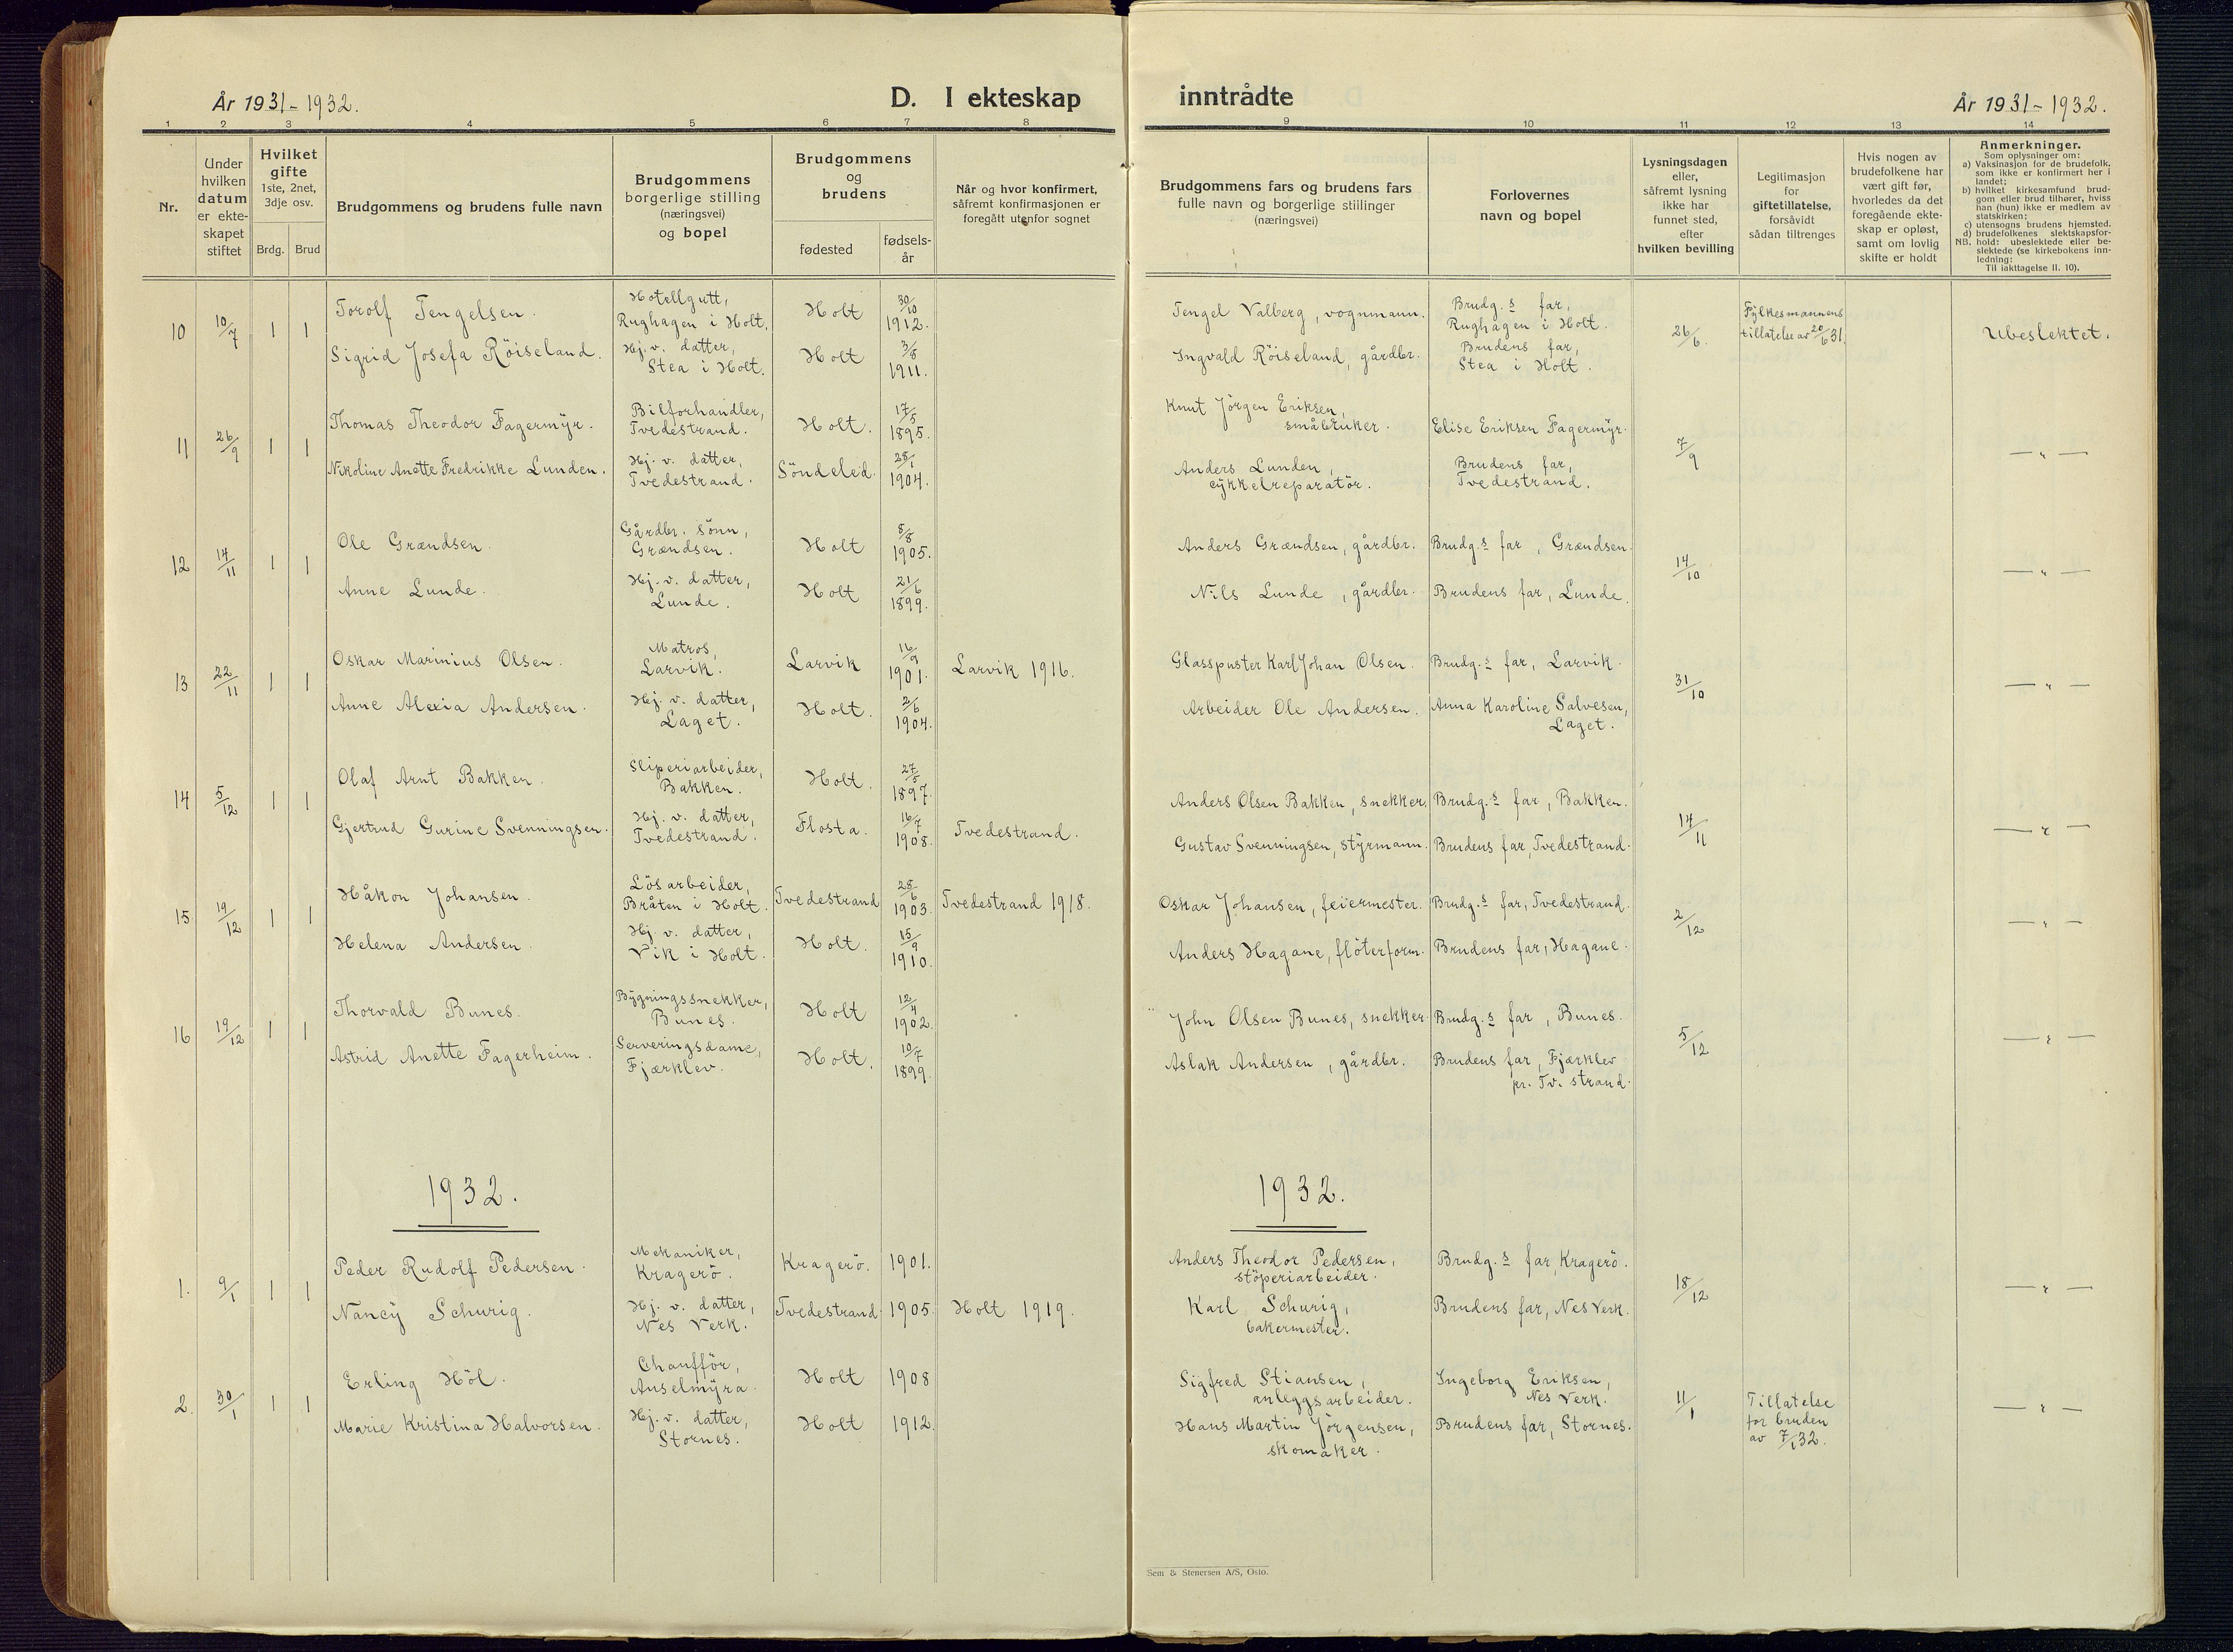 År 1931-1932.
D. I ekteskap
inntrådte
År 1931-1932.
1 2 3 4 5 6 7 8
9 10 11 12 13 14
Nr.
Under
hvilken
datum
er ekte-
skapet
stiftet
Hvilket
gifte
1ste, 2net,
3dje osv.
Brdg. Brud
Brudgommens og brudens fulle navn
Brudgommens
borgerlige stilling
(næringsvei)
og bopel
Brudgommens
og
brudens
fødested
fødsels-
år
Når og hvor konfirmert,
såfremt konfirmasjonen er
foregått utenfor sognet
Brudgommens fars og brudens fars
fulle navn og borgerlige stillinger
(næringsvei)
Forlovernes
navn og bopel
Lysningsdagen
eller,
såfremt lysning
ikke har
funnet sted,
efter
hvilken bevilling
Legitimasjon
for
giftetillatelse,
forsåvidt
sådan tiltrenges
Hvis nogen av
brudefolkene har
vært gift før,
hvorledes da det
foregående ekte-
skap er opløst,
samt om lovlig
skifte er holdt
Anmerkninger.
Som oplysninger om:
a) Vaksinasjon for de brudefolk,
som ikke er konfirmert her i
landet;
b) hvilket kirkesamfund brud-
gom eller brud tilhører, hviss
han (hun) ikke er medlem av
statskirken;
c) utensogns brudens hjemsted.
d) brudefolkenes slektskapsfor-
NB. hold: ubeslektede eller be-
slektede (se kirkebokens inn-
ledning:
Til iakttagelse II. 10).
10 10/7 1 1
Torolf Tengelsen.
Hotellgutt,
Rughagen i Holt.
Holt
30/10
1912.
Tengel Valberg, vognmann.
Brudg.s far,
Rughagen i Holt.
26/6.
Fylkesmannens
tillatelse av 20/6 31.
Ubeslektet.
Sigrid Josefa Röiseland.
Hj. v. datter,
Stea i Holt.
Holt
3/8
1911.
Ingvald Röiseland, gårdbr.
Brudens far,
Stea i Holt.
11 26/9 1 1
Thomas Theodor Fagermyr.
Bilforhandler,
Tvedestrand.
Holt.
17/5
1895.
Knut Jörgen Eriksen,
småbruker.
Elise Eriksen Fagermyr.
7/9
— " —
Nikoline Anette Fredrikke Lunden.
Hj. v. datter,
Tvedestrand.
Söndeled.
28/1
1904.
Anders Lunden,
cykkelreparatör.
Brudens far,
Tvedestrand.
12 14/11 1 1
Ole Grændsen.
Gårdbr. sönn,
Grændsen.
Holt
8/8
1905.
Anders Grændsen, gårdbr.
Brudg.s far, Grændsen.
14/10
— " —
Anne Lunde.
Hj. v. datter,
Lunde.
Holt
21/6
1899.
Nils Lunde, gårdbr.
Brudens far, Lunde.
13 22/11 1 1
Oskar Marinius Olsen.
Matros,
Larvik.
Larvik
16/9
1901.
Larvik 1916.
Glasspuster Karl Johan Olsen.
Brudg.s far, Larvik.
31/10
— " —
Anne Alexia Andersen.
Hj. v. datter,
Laget.
Holt.
2/6
1904.
Arbeider Ole Andersen.
Anna Karoline Salvesen,
Laget.
14 5/12 1 1
Olaf Arnt Bakken.
Sliperiarbeider,
Bakken.
Holt.
27/5
1897.
Anders Olsen Bakken, snekker.
Brudg.s far, Bakken.
14/11
— " —
Gjertrud Gurine Svenningsen.
Hj. v. datter,
Tvedestrand.
Flosta.
16/7
1908.
Tvedestrand.
Gustav Svenningsen, styrmann.
Brudens far, Tvedestrand.
15 19/12 1 1
Håkon Johansen.
Lösarbeider,
Bråten i Holt.
Tvedestrand
28/6
1903.
Tvedestrand 1918.
Oskar Johansen, feiermester.
Brudg.s far, Tvedestrand.
2/12
— " —
Helena Andersen.
Hj. v. datter,
Vik i Holt.
Holt.
15/9
1910.
Anders Hagane, flöterform.
Brudens far, Hagane.
16 19/12 1 1
Thorvald Bunes.
Bygningssnekker,
Bunes.
Holt
12/4
1902.
John Olsen Bunes, snekker.
Brudg.s far, Bunes.
5/12
— " —
Astrid Anette Fagerheim.
Serveringsdame,
Fjærklev.
Holt.
10/7
1899.
Aslak Andersen, gårdbr.
Brudens far, Fjærklev
pr. Tv. strand.
1932.
1932.
1. 9/1 1 1
Peder Rudolf Pedersen.
Mekaniker,
Kragerö.
Kragerö.
1901.
Anders Theodor Pedersen,
stöperiarbeider.
Brudg.s far, Kragerö.
18/12
— " —
Nancy Schurig.
Hj. v. datter,
Nes Verk.
Tvedestrand
1905.
Holt 1919.
Karl Schurig,
bakermester.
Brudens far, Nes Verk.
2. 30/1 1 1
Erling Höl.
Chaufför,
Auselmyra.
Holt
1908
Sigfred Stiansen,
anleggsarbeider.
Ingeborg Eriksen,
Nes Verk.
11/1
Tillatelse
for bruden
av 7/1 32.
— " —
Marie Kristina Halvorsen.
Hj. v. datter,
Stornes.
Holt
1912.
Hans Martin Jörgensen,
skomaker.
Brudens far, Stornes.
Sem & Stenersen A/S, Oslo.